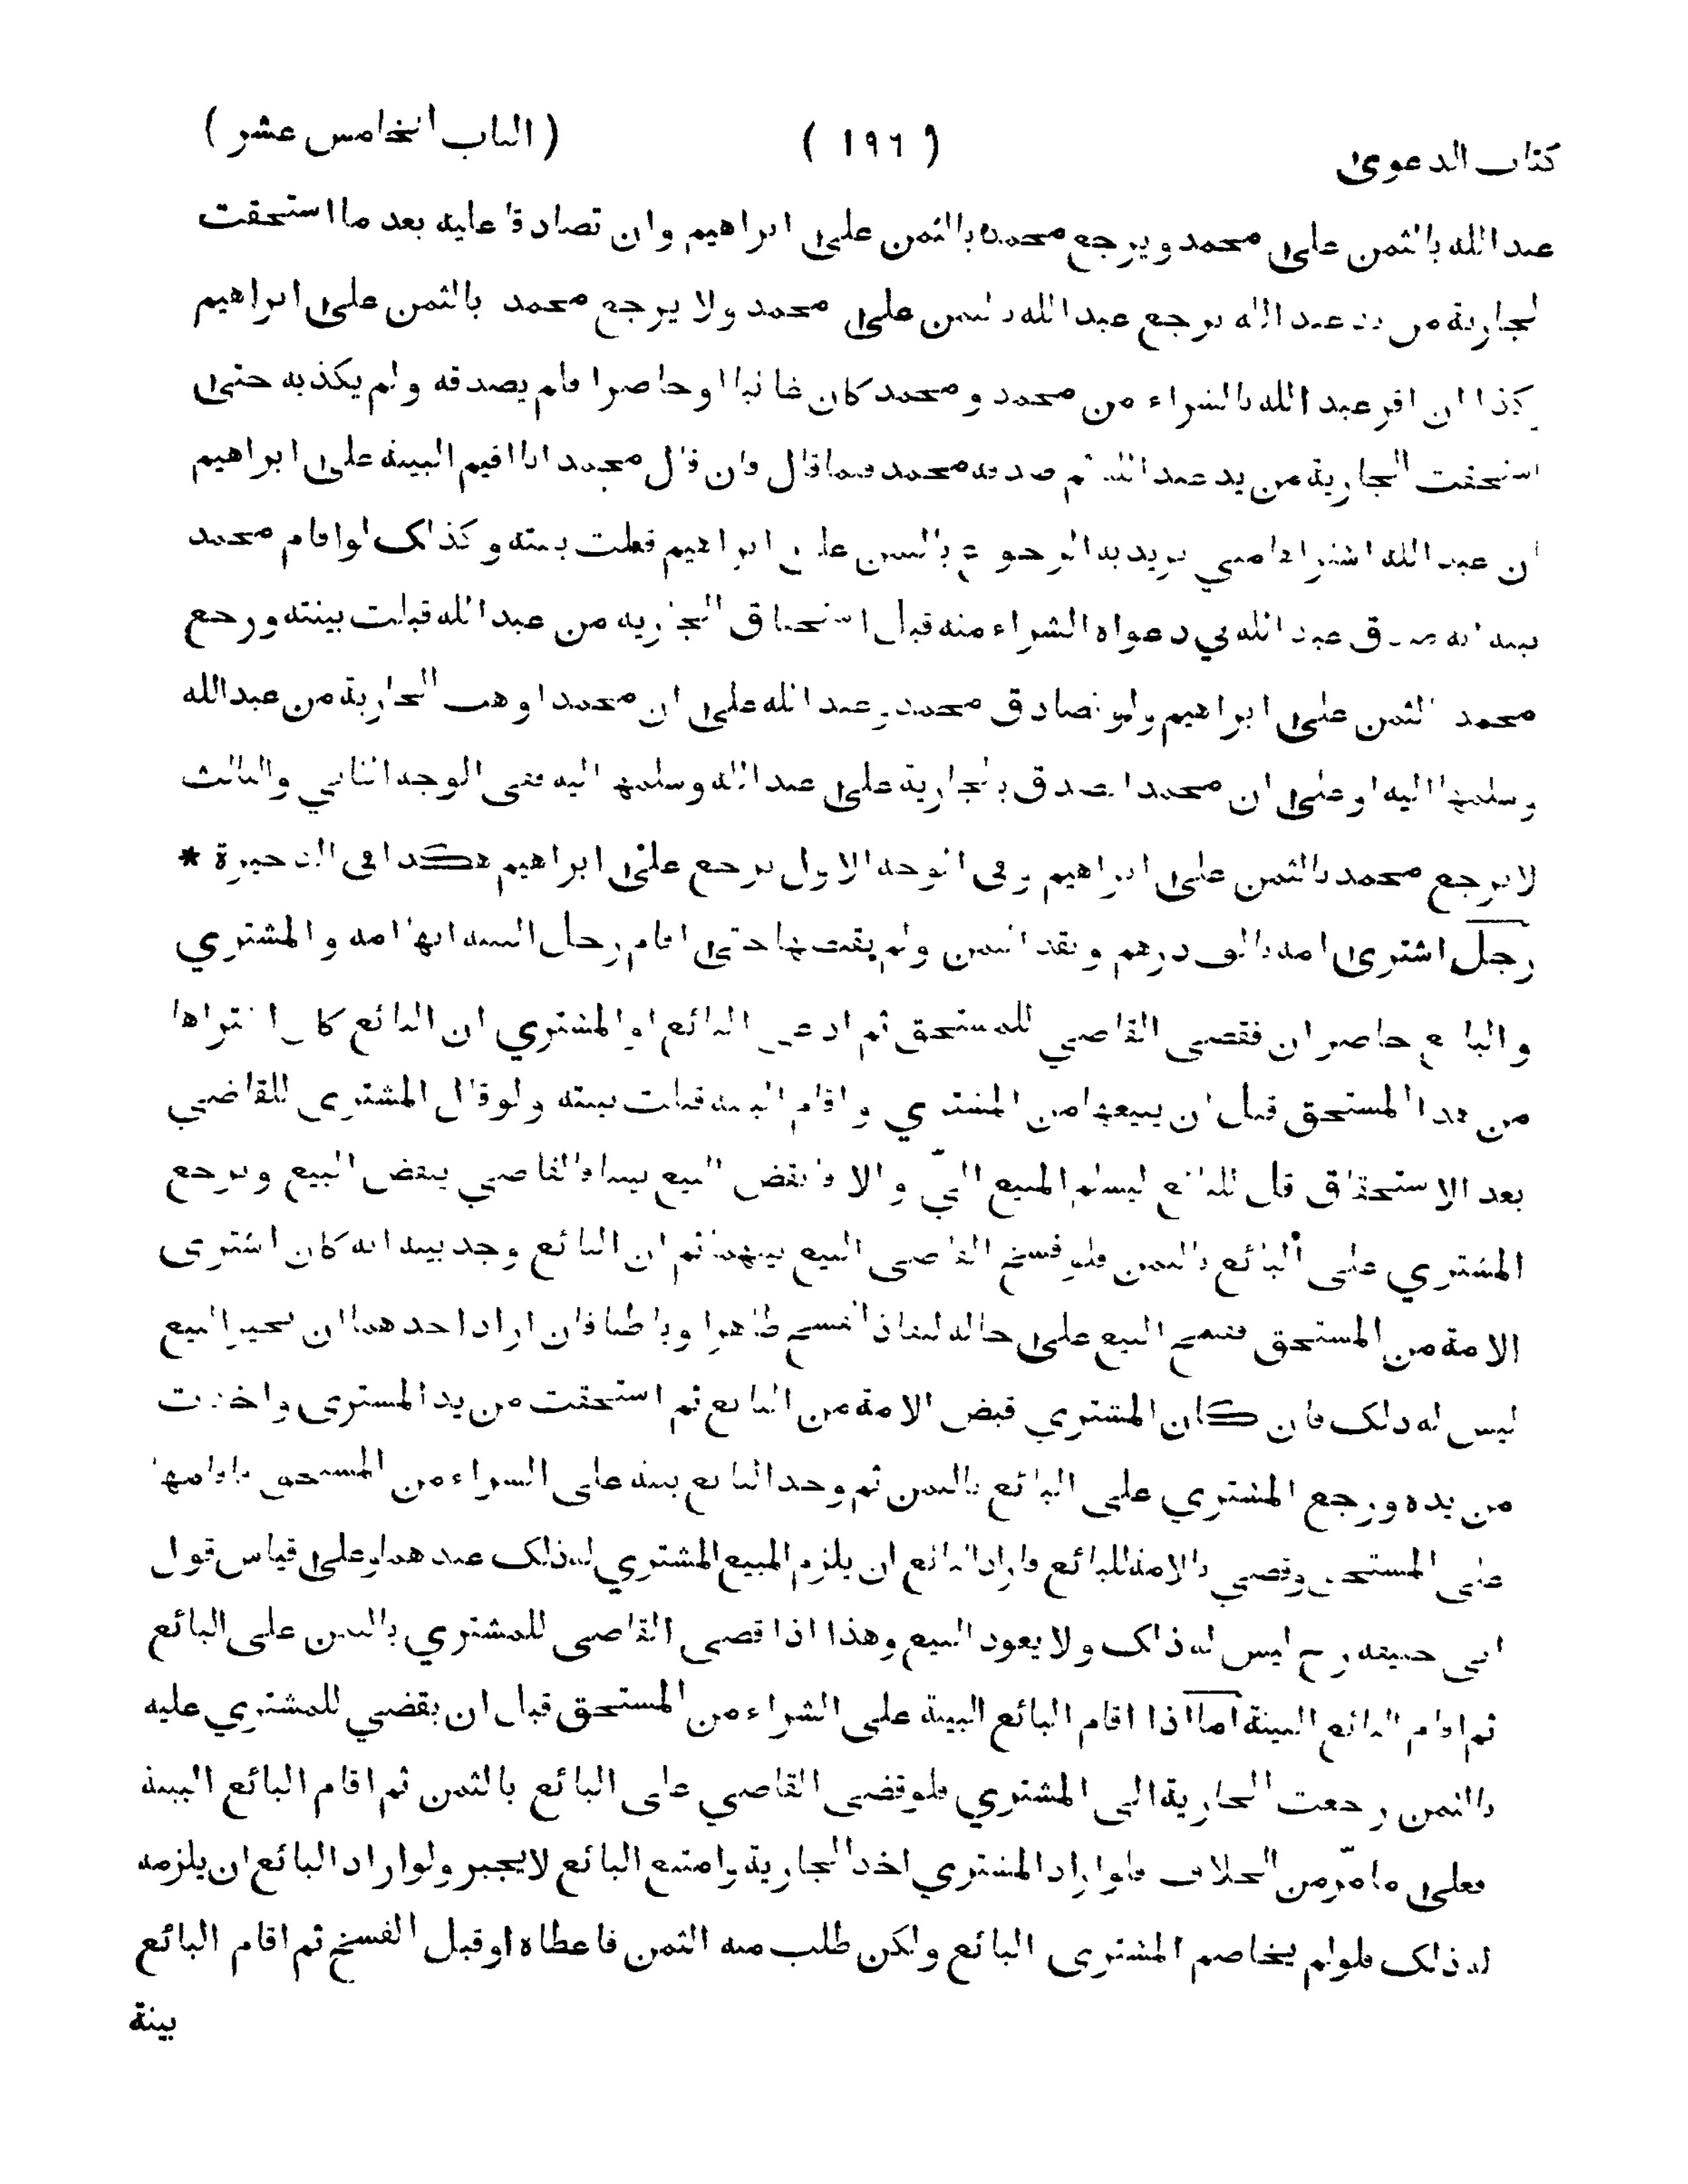 كتاب الدعوى ( ١٩٦ ) ( الباب الخامس عشر )
عبد الله بالثمن على محمد ويرجع محمد بالثمن على ابراهيم وان تصادقا عليه بعد ما استحقت
الجارية من يد عبد الله يرجع عبد الله بالثمن على محمد ولا يرجع محمد بالثمن على ابراهيم
وكذا ان اقر عبد الله بالشراء من محمد و محمد كان غائبا او حاضرا فلم يصدقه ولم يكذبه حتى
استحقت الجارية من يد عبد الله ثم صدقه محمد فيما قال فان قال محمد انا اقيم البينة على ابراهيم
ان عبد الله اشتراها مني يريد به الرجوع بالثمن على ابراهيم قبلت بينته وكذلك لو اقام محمد
بينة انه صدق عبد الله في دعواه الشراء منه قبل استحقاق الجارية من عبد الله قبلت بينته ورجع
محمد بالثمن على ابراهيم ولو تصادق محمد وعبد الله على ان محمدا وهب الجارية من عبد الله
وسلمها اليه او على ان محمدا تصدق بالجارية على عبد الله وسلمها اليه ففي الوجه الثاني والثالث
لا يرجع محمد بالثمن على ابراهيم وفي الوجه الاول يرجع على ابراهيم هكذا في الذخيرة *
رجل اشترى امة بالف درهم ونقد الثمن ولم يقبضها حتى اقام رجل البينة انها امته والمشتري
والبائع حاضران فقضى القاضي للمستحق ثم ادعى البائع او المشتري ان البائع كان اشتراها
من هذا المستحق قبل ان يبيعها من المشتري واقام البينة قبلت بينته ولو قال المشترى للقاضي
بعد الاستحقاق قل للبائع ليسلم المبيع اليّ والا فانقض البيع بيننا فالقاضي ينقض البيع ويرجع
المشتري على البائع بالثمن فلو فسخ القاضى البيع بينهما ثم ان البائع وجد بينة انه كان اشترى
الامة من المستحق فسخ البيع على حاله لنفاذ الفسخ ظاهرا وباطنا فان اراد احدهما ان يجيز البيع
ليس له ذلك فان كان المشتري قبض الامة من البائع ثم استحقت من يد المشترى واخذت
من يده ورجع المشتري على البائع بالثمن ثم وجد البائع بينة على الشراء من المستحق فاقامها
على المستحق وقضي بالامة للبائع فاراد البائع ان يلزم المبيع المشتري له ذلك عندهما وعلى قياس قول
ابى حنيفة رح ليس له ذلك ولا يعود البيع وهذا اذا قضى القاضى للمشتري بالثمن على البائع
ثم اقام البائع البينة اما اذا اقام البائع البينة على الشراء من المستحق قبل ان يقضي للمشتري عليه
بالثمن رجعت الجارية الى المشتري فلو قضى القاضي على البائع بالثمن ثم اقام البائع البينة
فعلى ما مرّ من الخلاف فلو اراد المشتري اخذ الجارية وامتنع البائع لا يجبر ولو اراد البائع ان يلزمه
له ذلك فلو لم يخاصم المشترى البائع ولكن طلب منه الثمن فاعطاه او قبل الفسخ ثم اقام البائع
بينة